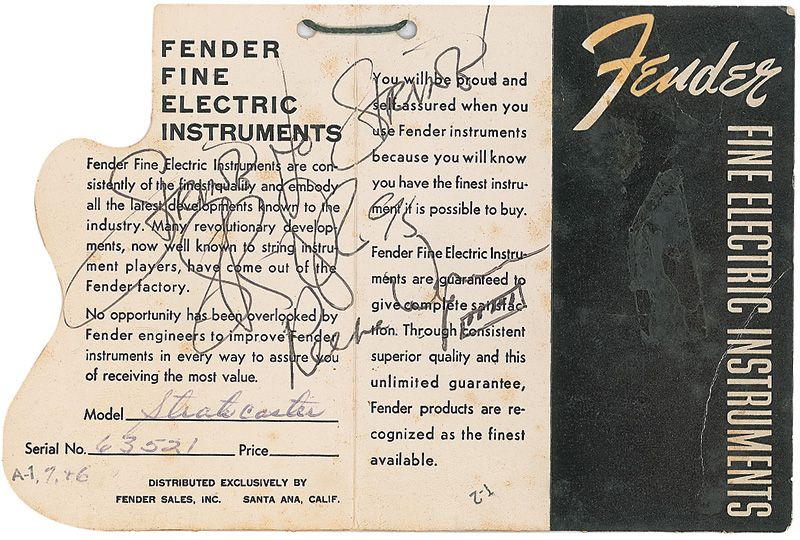 FENDER
FINE
ELECTRIC
INSTRUMENTS
Fender Fine Electric Instruments are con-
sistently of the finest quality and embody
all the latest developments known to the
industry. Many revolutionary develop-
ments, now well known to string instru-
ment players, have come out of the
Fender factory.
No opportunity has been overlooked by
Fender engineers to improve Fender
instruments in every way to assure you
of receiving the most value.
Model Stratocaster
Serial No. 63521 Price
A-1, 7, +6
DISTRIBUTED EXCLUSIVELY BY
FENDER SALES, INC. SANTA ANA, CALIF.
You will be proud and
self-assured when you
use Fender instruments
because you will know
you have the finest instru-
ment it is possible to buy.
Fender Fine Electric Instru-
ments are guaranteed to
give complete satisfac-
tion. Through consistent
superior quality and this
unlimited guarantee,
Fender products are re-
cognized as the finest
available.
Fender
FINE ELECTRIC INSTRUMENTS